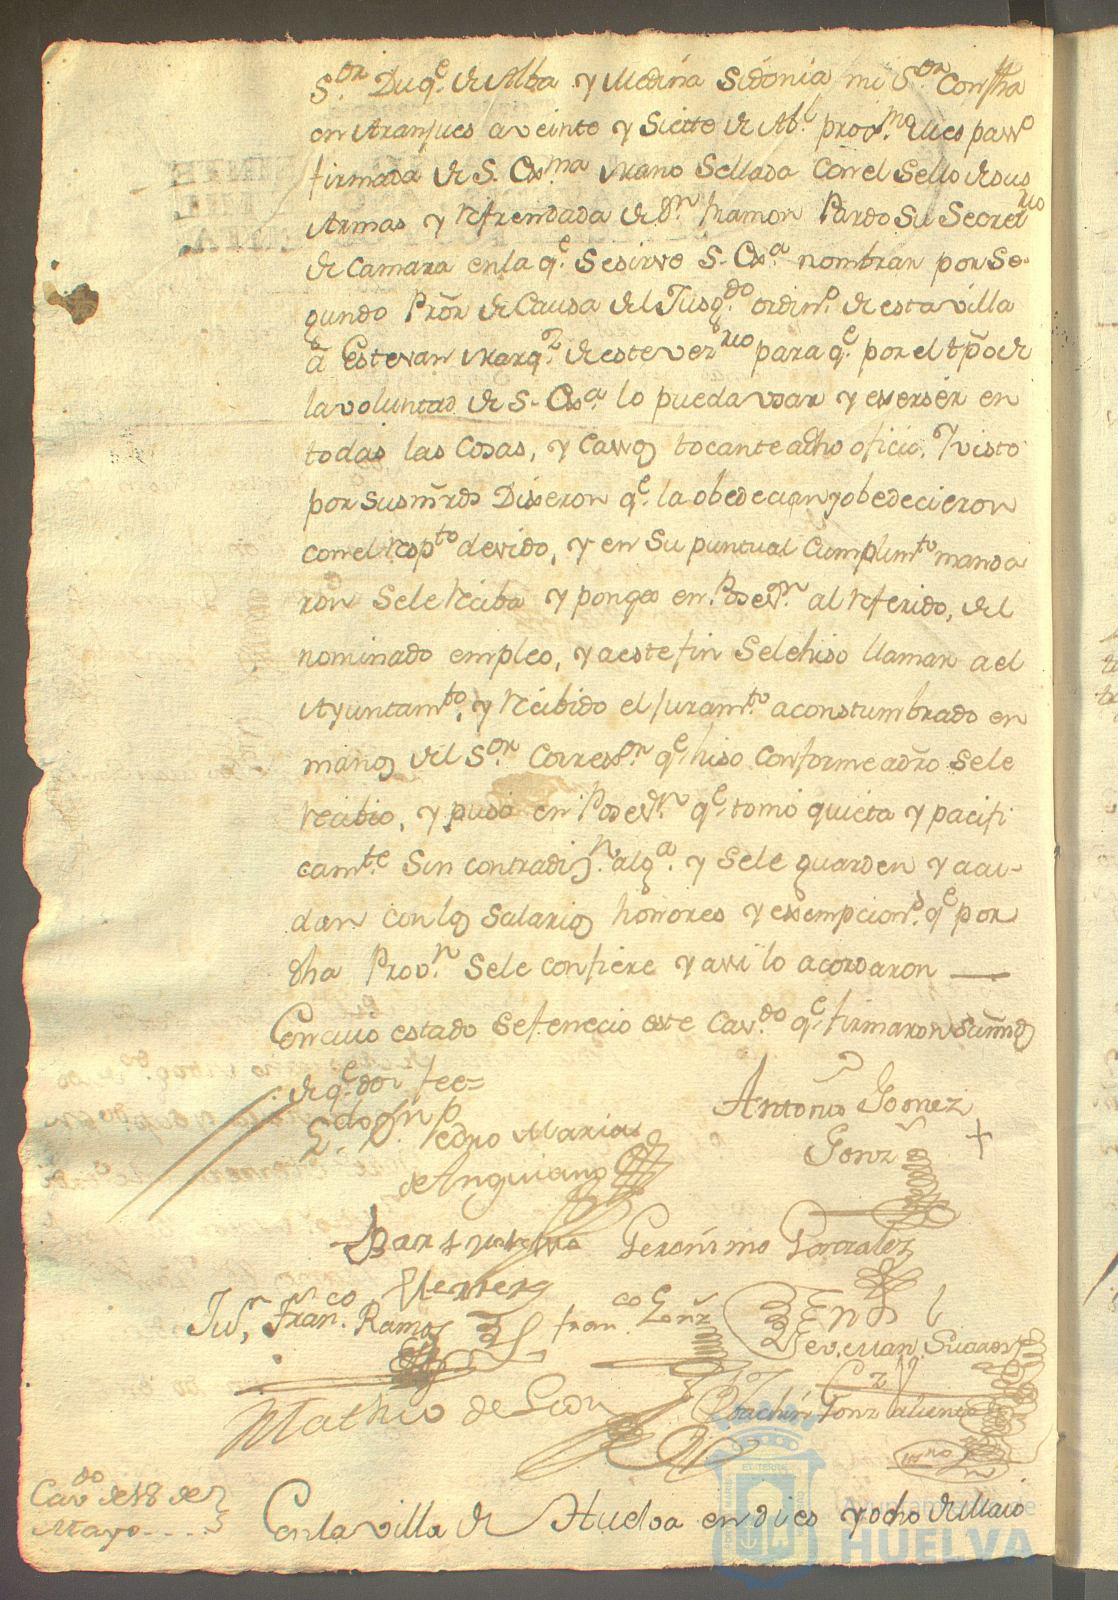 S.or Duq.e de Alba y Medina Sidonia mi S.or Con fha
en Aranjues a veinte y Siette de Ab.l prox.mo Mes pas.do
firmada de S. Ex.ma mano Sellada con el Sello de sus
Armas y Refrendada de D.n Ramon Pardo Su Secret.rio
de Camara en la q.e Se sirve S. Ex.a nombrar por Se-
gundo Pror de Causa del Jusg.do ordin.o de esta villa
a Estevan Marq.z de este vez.rio para q.e por el tpo de
la voluntad de S. Ex.a lo pueda usar y exerser en
todas las Cosas, y Casos tocante a dho oficio, Y visto
por sus mrds Dixeron q.e la obedecian y obedecieron
con el Resp.to devido, y en Su puntual Cumplim.to manda
ron Se le Reciba y ponga en Poses.n al Referido, del
nominado empleo, y a este fin Se le hiso llamar a el
Ayuntam.to, y Recibido el Juram.to acostumbrado en
manos del S.or Correx.or q.e hiso conforme a dro Se le
Recibio, y puso en Poses.n q.e tomó quieta y pacifi
cam.te Sin contradiz.n alg.a y Se le guarden y acu-
dan con los Salarios honores y exsempcion.s q.e por
dha Prov.n Se le confiere y assi lo acordaron
En cuio estado Se fenecio este Cav.do q.e firmaron Sus mds
de q.e doi fee=
Ldo D.n Pedro Maria
de Anguiano
Antonio Gomez
Gonz +
Geronimo Gonzalez
Herrera
Ju.n Fran.co Ramos
Fran.co Gonz
Matheo de Leon
Joachin Gonz
Cav.do de 18 de
Mayo....
En la villa de Huelva en dies y ocho de Maio
Ayuntamiento de
HUELVA